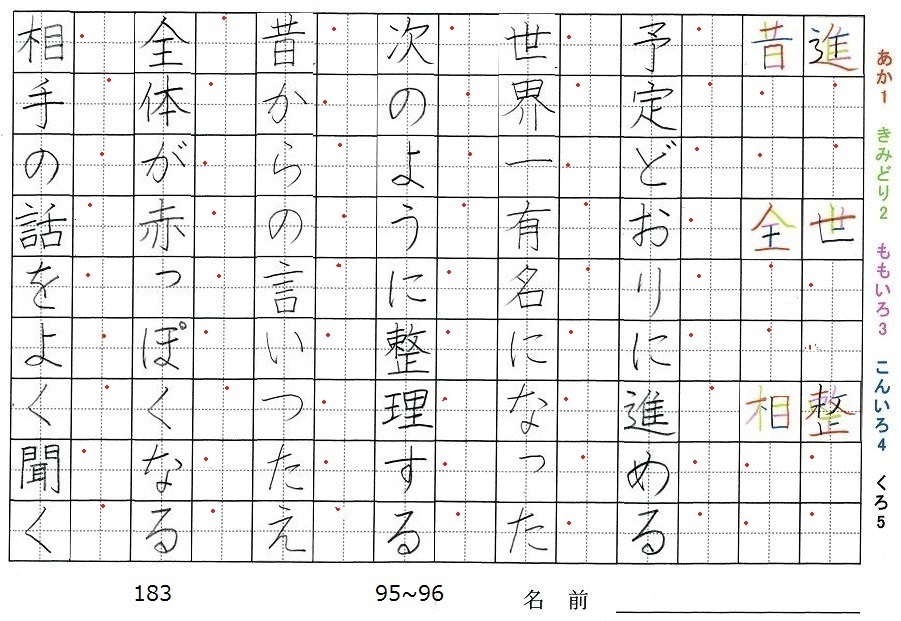 あか1 きみどり2 ももいろ3 こんいろ4 くろ5
進 世 整
昔 全 相
予定どおりに進める
世界一有名になった
次のように整理する
昔からの言いつたえ
全体が赤っぽくなる
相手の話をよく聞く
183 95~96 名前